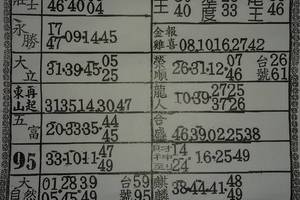 46·40 04
40 度 33 陸 46
永勝 17 47·09·14·45
金報雞喜 08.10.16.27.42
大立 31·39·45 05 25
榮順 26·31·12 07 46 台號 26 61
東山再起 31.35.14.30.47
龍人 10·39 2725 3726
五富 20·33·35 44 45
合盛 46.39.02.25.38
95 33·10·11 47 49
財神 14 24 16·25·49
大自然 01 28 39 05 45 49 台號 59 95
麒麟 38·44·41 48 49